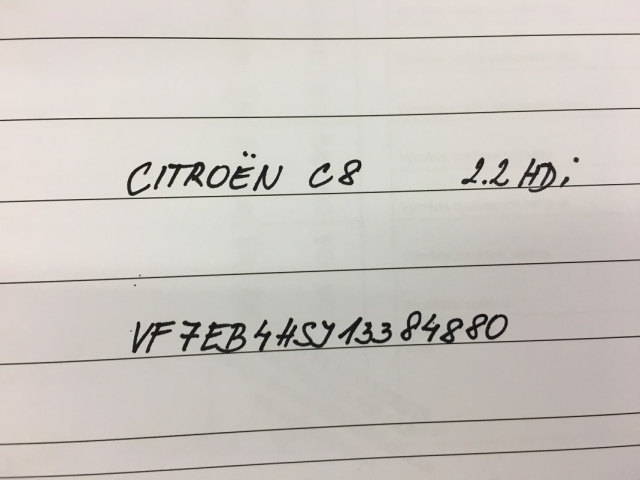 CITROËN C8 2.2 HDi
VF7EB4HSJ13384880